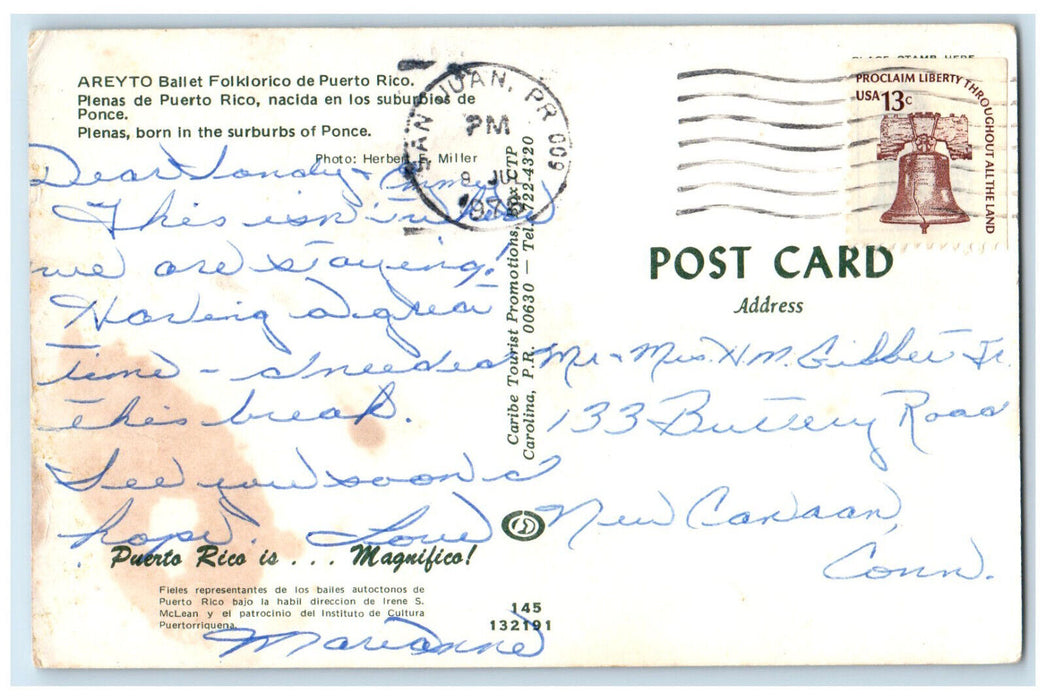 AREYTO Ballet Folklorico de Puerto Rico.
Plenas de Puerto Rico, nacida en los suburbios de
Ponce.
Plenas, born in the surburbs of Ponce.
Photo: Herbert F. Miller
Dear Sandy &
This isn't
we are staying!
Having a great
time - I needed
this break.
See you soon I
hope. Love
Marianne
Puerto Rico is ... Magnifico!
Fieles representantes de los bailes autoctonos de
Puerto Rico bajo la habil direccion de Irene S.
McLean y el patrocinio del Instituto de Cultura
Puertorriquena.
Caribe Tourist Promotions, Box CTP
Carolina, P.R. 00630 — Tel. 722-4320
145
132191
SAN JUAN, PR 009
PM
PROCLAIM LIBERTY THROUGHOUT ALL THE LAND
USA 13c
PLACE STAMP HERE
POST CARD
Address
Mr & Mrs. H.M. Gibbee Jr.
133 Buttery Road
New Canaan,
Conn.